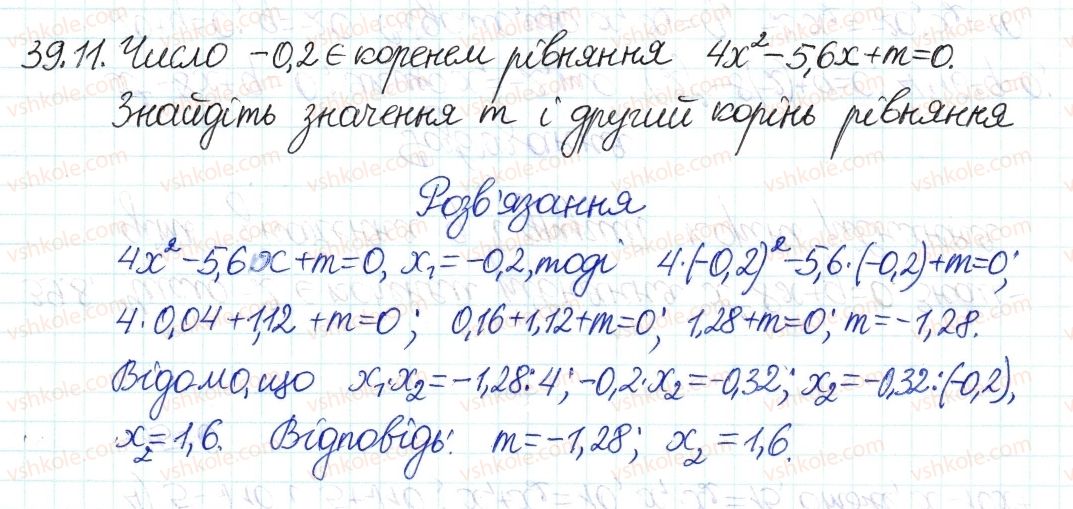 39.11. Число -0,2 є коренем рівняння 4x²-5,6x+m=0.
Знайдіть значення m і другий корінь рівняння
Розв'язання
4x²-5,6x+m=0, x₁=-0,2, тоді 4·(-0,2)²-5,6·(-0,2)+m=0;
4·0,04+1,12+m=0; 0,16+1,12+m=0; 1,28+m=0; m=-1,28.
Відомо, що x₁·x₂=-1,28:4; -0,2·x₂=-0,32; x₂=-0,32:(-0,2),
x₂=1,6. Відповідь: m=-1,28; x₂=1,6.